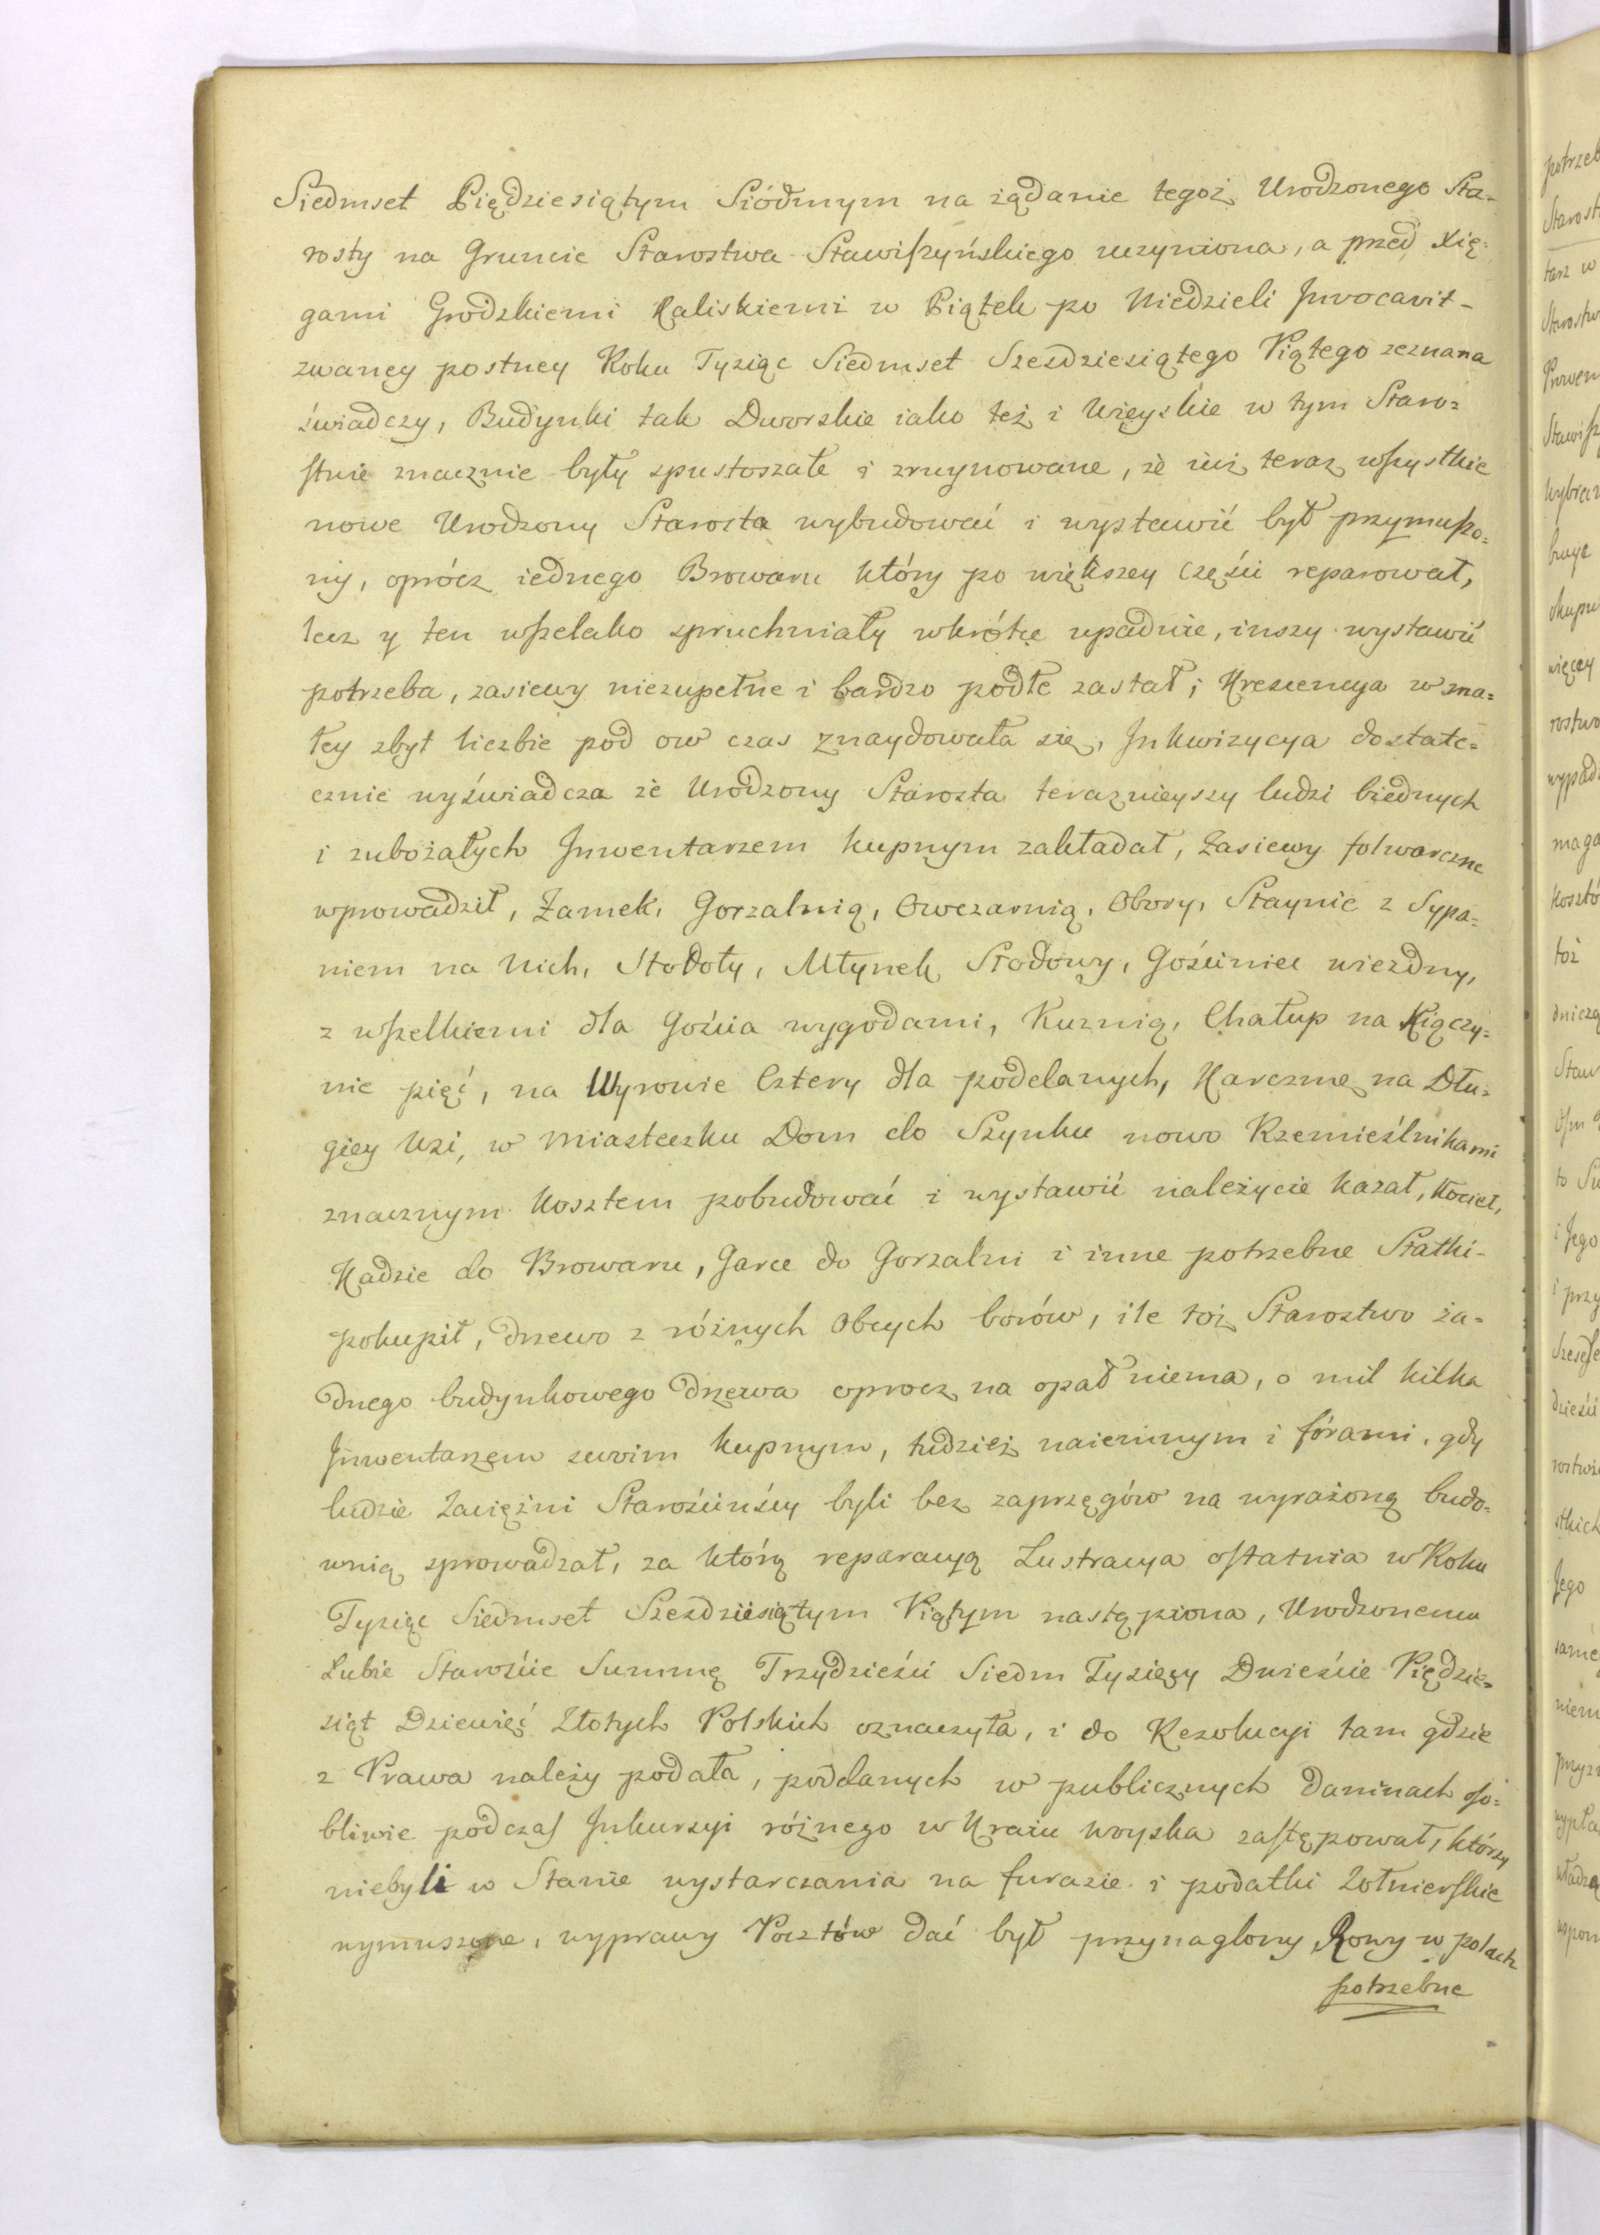 Siedmset Piędziesiątym Siódmym na żądanie tegoż Urodzonego Sta=
rosty na Gruncie Starostwa Stawiszyńskiego uczyniona, a przed Xię=
gami Grodzkiemi Kaliskiemi w Piątek po Niedzieli Invocavit-
zwaney postney Roku Tysiąc Siedmset Szesdziesiątego Piątego zeznana
świadczy, Budynki tak Dworskie iako też i Wieyskie w tym Staro=
stwie znacznie były spustoszałe i zruynowane, że iuż teraz wszystkie
nowe Urodzony Starosta wybudować i wystawić był przymuszo=
ny, oprócz iednego Browaru który po większey części reparował,
lecz y ten wszelako spruchniały wkrótce upadnie, inszy wystawić
potrzeba, zasiewy niezupełne i bardzo podłe zastał, Krescencya w ma=
łey zbyt liczbie pod ow czas znaydowała się, Inkwizycya dostate=
cznie wyświadcza że Urodzony Starosta teraznieyszy ludzi biednych
i zubożałych Inwentarzem kupnym zakładał, Zasiewy folwarczne
wprowadził, Zamek, Gorzalnią, Owczarnią, Obory, Staynie z Sypa=
niem na Nich, Stodoły, Młynek Słodowy, Gościniec wiezdny,
z wszelkiemi dla Gościa wygodami, Kuznią, Chałup na Kiączy=
nie pięć, na Wyrowie Cztery dla poddanych, Karczmę na Dłu=
giey Wsi, w Miasteczku Dom do Szynku nowo Rzemieślnikami
znacznym Kosztem pobudować i wystawić należycie kazał, Kocieł,
Kadzie do Browaru, Garce do Gorzalni i inne potrzebne Statki-
pokupił, drzewo z różnych Obcych borów, ile toż Starostwo ża=
dnego budynkowego drzewa oprocz na opał niema, o mil kilka
Inwentarzem swoim kupnym, tudzież naiemnym i fórami, gdy
ludzie Zaciężni Starościńscy byli bez zaprzęgów na wyrażoną budo=
wnią sprowadzał, za którą reparacyą Lustracya ostatnia w Roku
Tysiąc Siedmset Szesdziesiątym Piątym nastąpiona, Urodzonemu
Lubie Starościе Summę Trzydzieści Siedm Tysięcy Dwieście Piędzie=
siąt Dziewięć Złotych Polskich oznaczyła, i do Rezolucyi tam gdzie
z Prawa należy podała, poddanych w publicznych Daninach oso=
bliwie podczas Inkursyi różnego w Kraiu woyska zastępował, którzy
niebyli w Stanie wystarczania na furazie i podatki Zołnierskie
wymuszone, wyprawy Pocztów dać był przynaglony, Rowy w polach
potrzebne